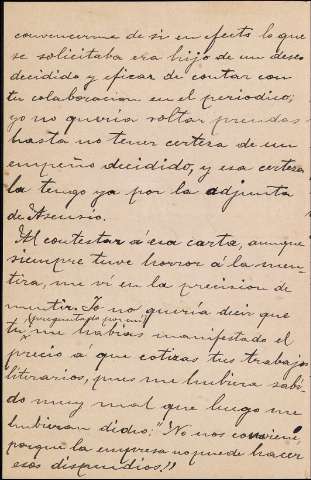 convencerme de si en efecto lo que
se solicitaba era hijo de un deseo
decidido y eficaz de contar con
tu colaboracion en el periodico;
yo no queria soltar prendas
hasta no tener certeza de un
empeño decidido, y esa certeza
la tengo ya por la adjunta
de Asensio.
Al contestar á esa carta, aunque
siempre tuve horror á la men-
tira, me ví en la precision de
mentir. Yo no queria decir que
(preguntado por mí)
tu me habias manifestado el
precio á que cotizas tus trabajos
literarios, pues me hubiera sabi-
do muy mal que luego me
hubieran dicho: "No nos conviene,
porque la empresa no puede hacer
esos dispendios."